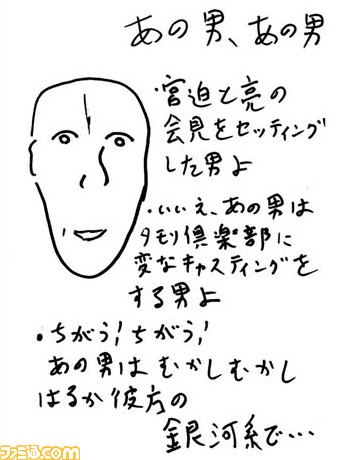 あの男、あの男
・宮迫と亮の
会見をセッティング
した男よ
・いいえ、あの男は
タモリ倶楽部に
変なキャスティングを
する男よ
・ちがう!ちがう!
あの男はむかしむかし
はるか彼方の
銀河系で…
ファミ通.com